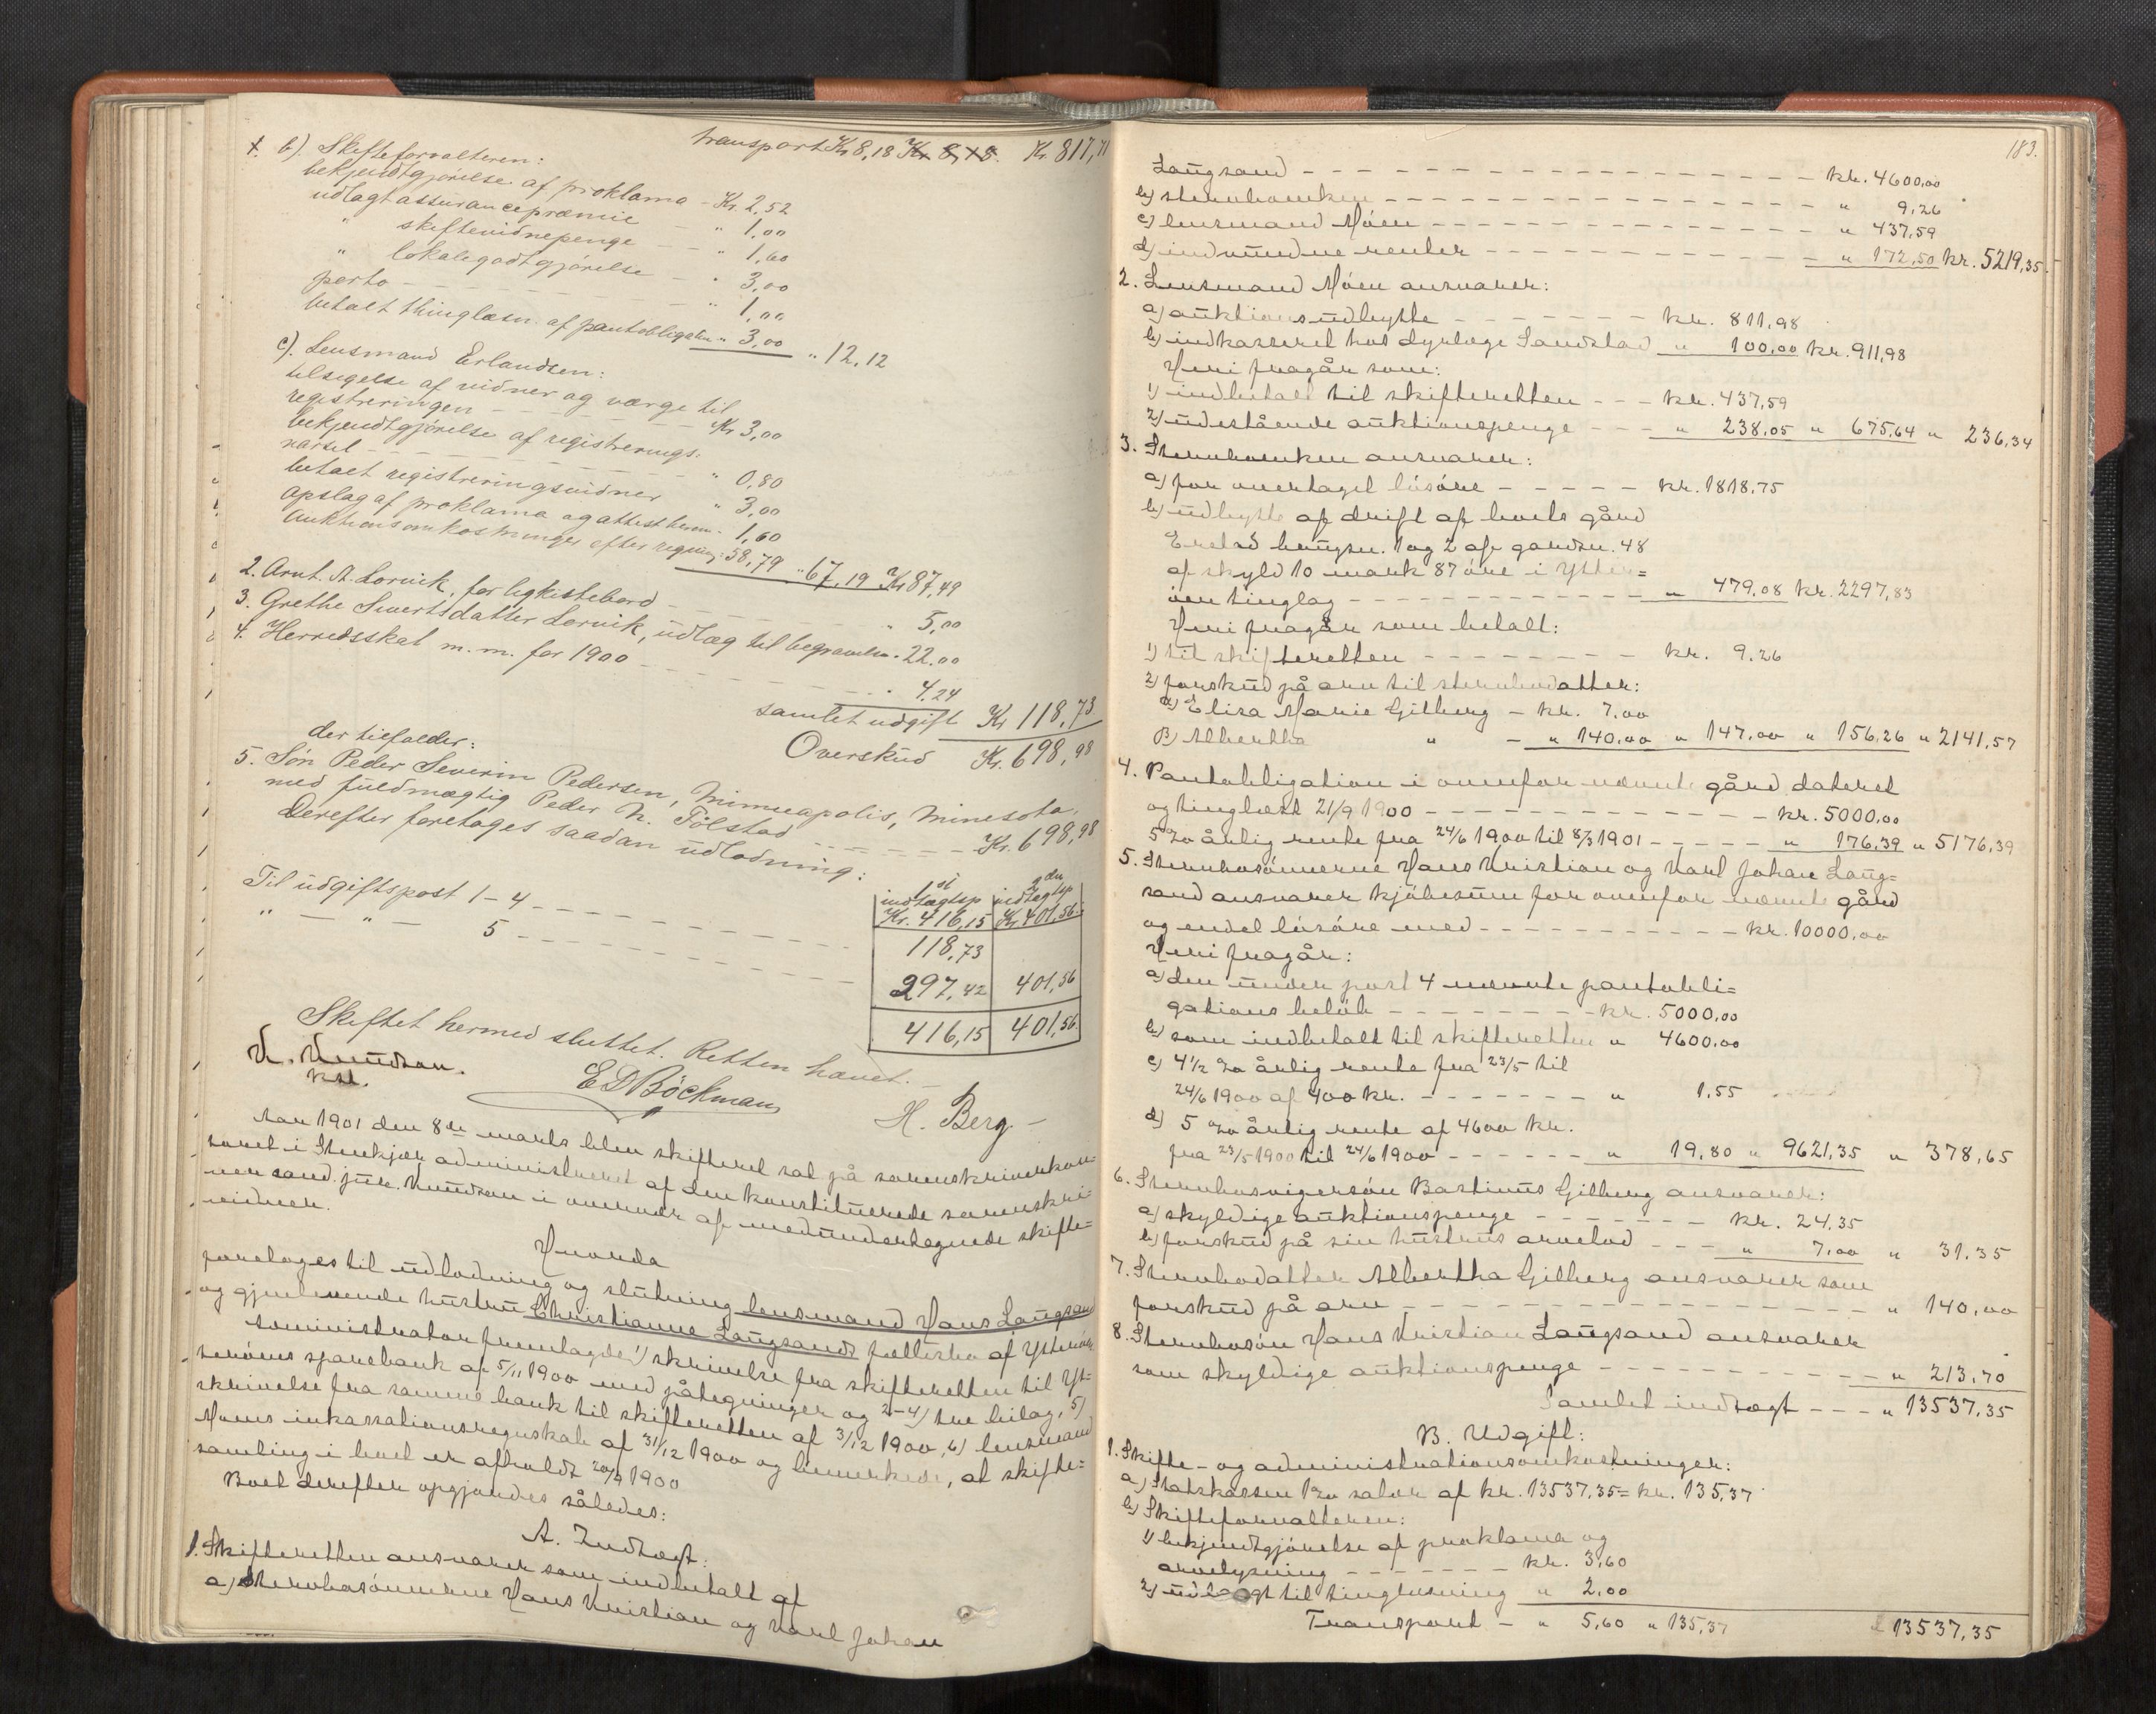 transport Kr 8,18 Kr. 8,18. Kr. 817,71
1. b). Skifteforvalteren:
bekjendtgjørelse af proklama - Kr. 2,52
udlagt assurancepræmie - " 1,00
" skiftevidnepenge - - " 1,60
" lokalegodtgjørelse - " 3,00
porto - - - " 1,00
betalt thinglæsn. af pantobligation " 3,00 " 12,12
c). Lensmand Erlandsen:
tilsigelse af vidner og værge til
registreringen - - - Kr 3,00
bekjendtgjørelse af registrerings-
varsel - - - " 0,80
betalt registreringsvidner " 3,00
opslag af proklama og attest herom - 1,60
Auktionsomkostninger efter regning: 58,79 " 67,19 Kr 87,49
2. Arnt. A. Lorvik, for ligkistebord - - - " 5,00
3. Grethe Sivertsdatter Lorvik, udlæg til begravelse. 22.00
4. Herredsskat m. m. for 1900 - - - 4.24
samlet udgift Kr 118,73
Overskud Kr. 698,98
der tilfalder:
5. Søn Peder Severin Pedersen, Minneapolis, Minesota,
med fuldmægtig Peder N. Tølstad - - - Kr. 698,98
Derefter foretages saadan udlodning:
1st indtægtsp 2den indtægtsp
Kr. 416,15 Kr 401,56
Til udgiftspost 1-4 - - - 118,73
" - " - 5 - - - 297,42 401,56
416,15 401,56
Skiftet hermed sluttet. Retten hævet. -
K. Knudson.
kst.
E D Böckman
H. Berg -
Aar 1901 den 8de marts blev skifteret sat på sorenskriverkon=
toret i Stenkjær administreret af den konstituerede sorenskri=
ver cand. jur. Knudson i overvær af medundertegnede skifte=
vidner.
Hvorda
foretoges til udlodning og slutning lensmand Hans Langsand
og gjenlevende hustru Christianne Langsands fællesbo af Ytterøen
Administrator fremlagde 1) skrivelse fra skifteretten til Yt=
terøens sparebank af 5/11 1900 med påtegninger og 2-4) tre bilag, 5)
skrivelse fra samme bank til skifteretten af 3/12 1900, 6) lensmand
Moens inkassationsregnskab af 31/12 1900 og bemerkede, at skifte=
samling i boet er afholdt 20/9 1900
Boet derefter opgjordes således:
A. Indtægt:
1. Skifteretten ansvarer som indbetalt af
a) sterbosønnerne Hans Kristian og Karl Johan
183.
Langsand - - - kr. 4600,00
b) sterboenken - - - " 9,26
c) lensmand Moen - - - " 437,59
d) indvundne renter - - - " 172,50 kr. 5219,35.
2. Lensmand Moen ansvarer:
a) auktionsudbytte - - - kr. 811,98
b) indkasseret hos dyrlæge Sandstad " 100,00 kr. 911,98
Heri fragår som:
1) indbetalt til skifteretten - - - kr. 437,59
2) udestående auktionspenge - - - " 238,05 " 675,64 " 236,34
3. Sterboenken ansvarer:
a) for overtaget løsøre - - - kr. 1818,75
b) udbytte af drift af boets gård
Erstad brugsn. 1 og 2 af gardsn. 48
af skyld 10 mark 87 øre i Ytter=
øen tinglag - - - " 479,08 kr. 2297,83
Heri fragår som betalt:
1) til skifteretten - - - kr. 9.26
2) forskud på arv til sterbodatter:
α) Elisa Marie Gilberg - kr. 7.00
β) Albertha " - " 140,00 " 147.00 " 156,26 " 2141,57
4. Pantobligation i ovenfor nævnte gård dateret
og tinglæst 21/9 1900 - - - kr. 5000,00
5 % årlig rente fra 24/6 1900 til 8/3 1901 - - - " 176,39 " 5176,39
5. Sterbosønnerne Hans Kristian og Karl Johan Lang=
sand ansvarer kjøbesum for ovenfor nævnte gård
og endel løsøre med - - - kr. 10000,00
Heri fragår:
a) den under post 4 nævnte pantobli=
gations beløb - - - kr. 5000,00
b) som indbetalt til skifteretten " 4600.00
c) 4 1/2 % årlig rente fra 23/5 til
24/6 1900 af 400 kr. - - - " 1.55
d) 5 % årlig rente af 4600 kr.
fra 23/5 1900 til 24/6 1900 - - - " 19,80 " 9621,35 " 378,65
6. Sterbosvigersøn Bastinus Gilberg ansvarer:
a) skyldige auktionspenge - - - kr. 24,35
b) forskud på sin hustrus arvelod - - - " 7,00 " 31.35
7. Sterbodatter Albertha Gilberg ansvarer som
forskud på arv - - - " 140,00
8. Sterbosøn Hans Kristian Langsand ansvarer
som skyldige auktionspenge - - - " 213,70
Samlet indtægt - - - " 13537,35
B. Udgift:
1. Skifte- og administrationsomkostninger:
a) Statskassen 1 % salær af kr. 13537,35 = kr. 135,37
b) Skifteforvalteren:
1) bekjendtgjørelse af proklama og
arvelysning - - - kr. 3,60
2) udlagt til tinglysning " 2.00
Transport - " 5,60 " 135,37 13537,35